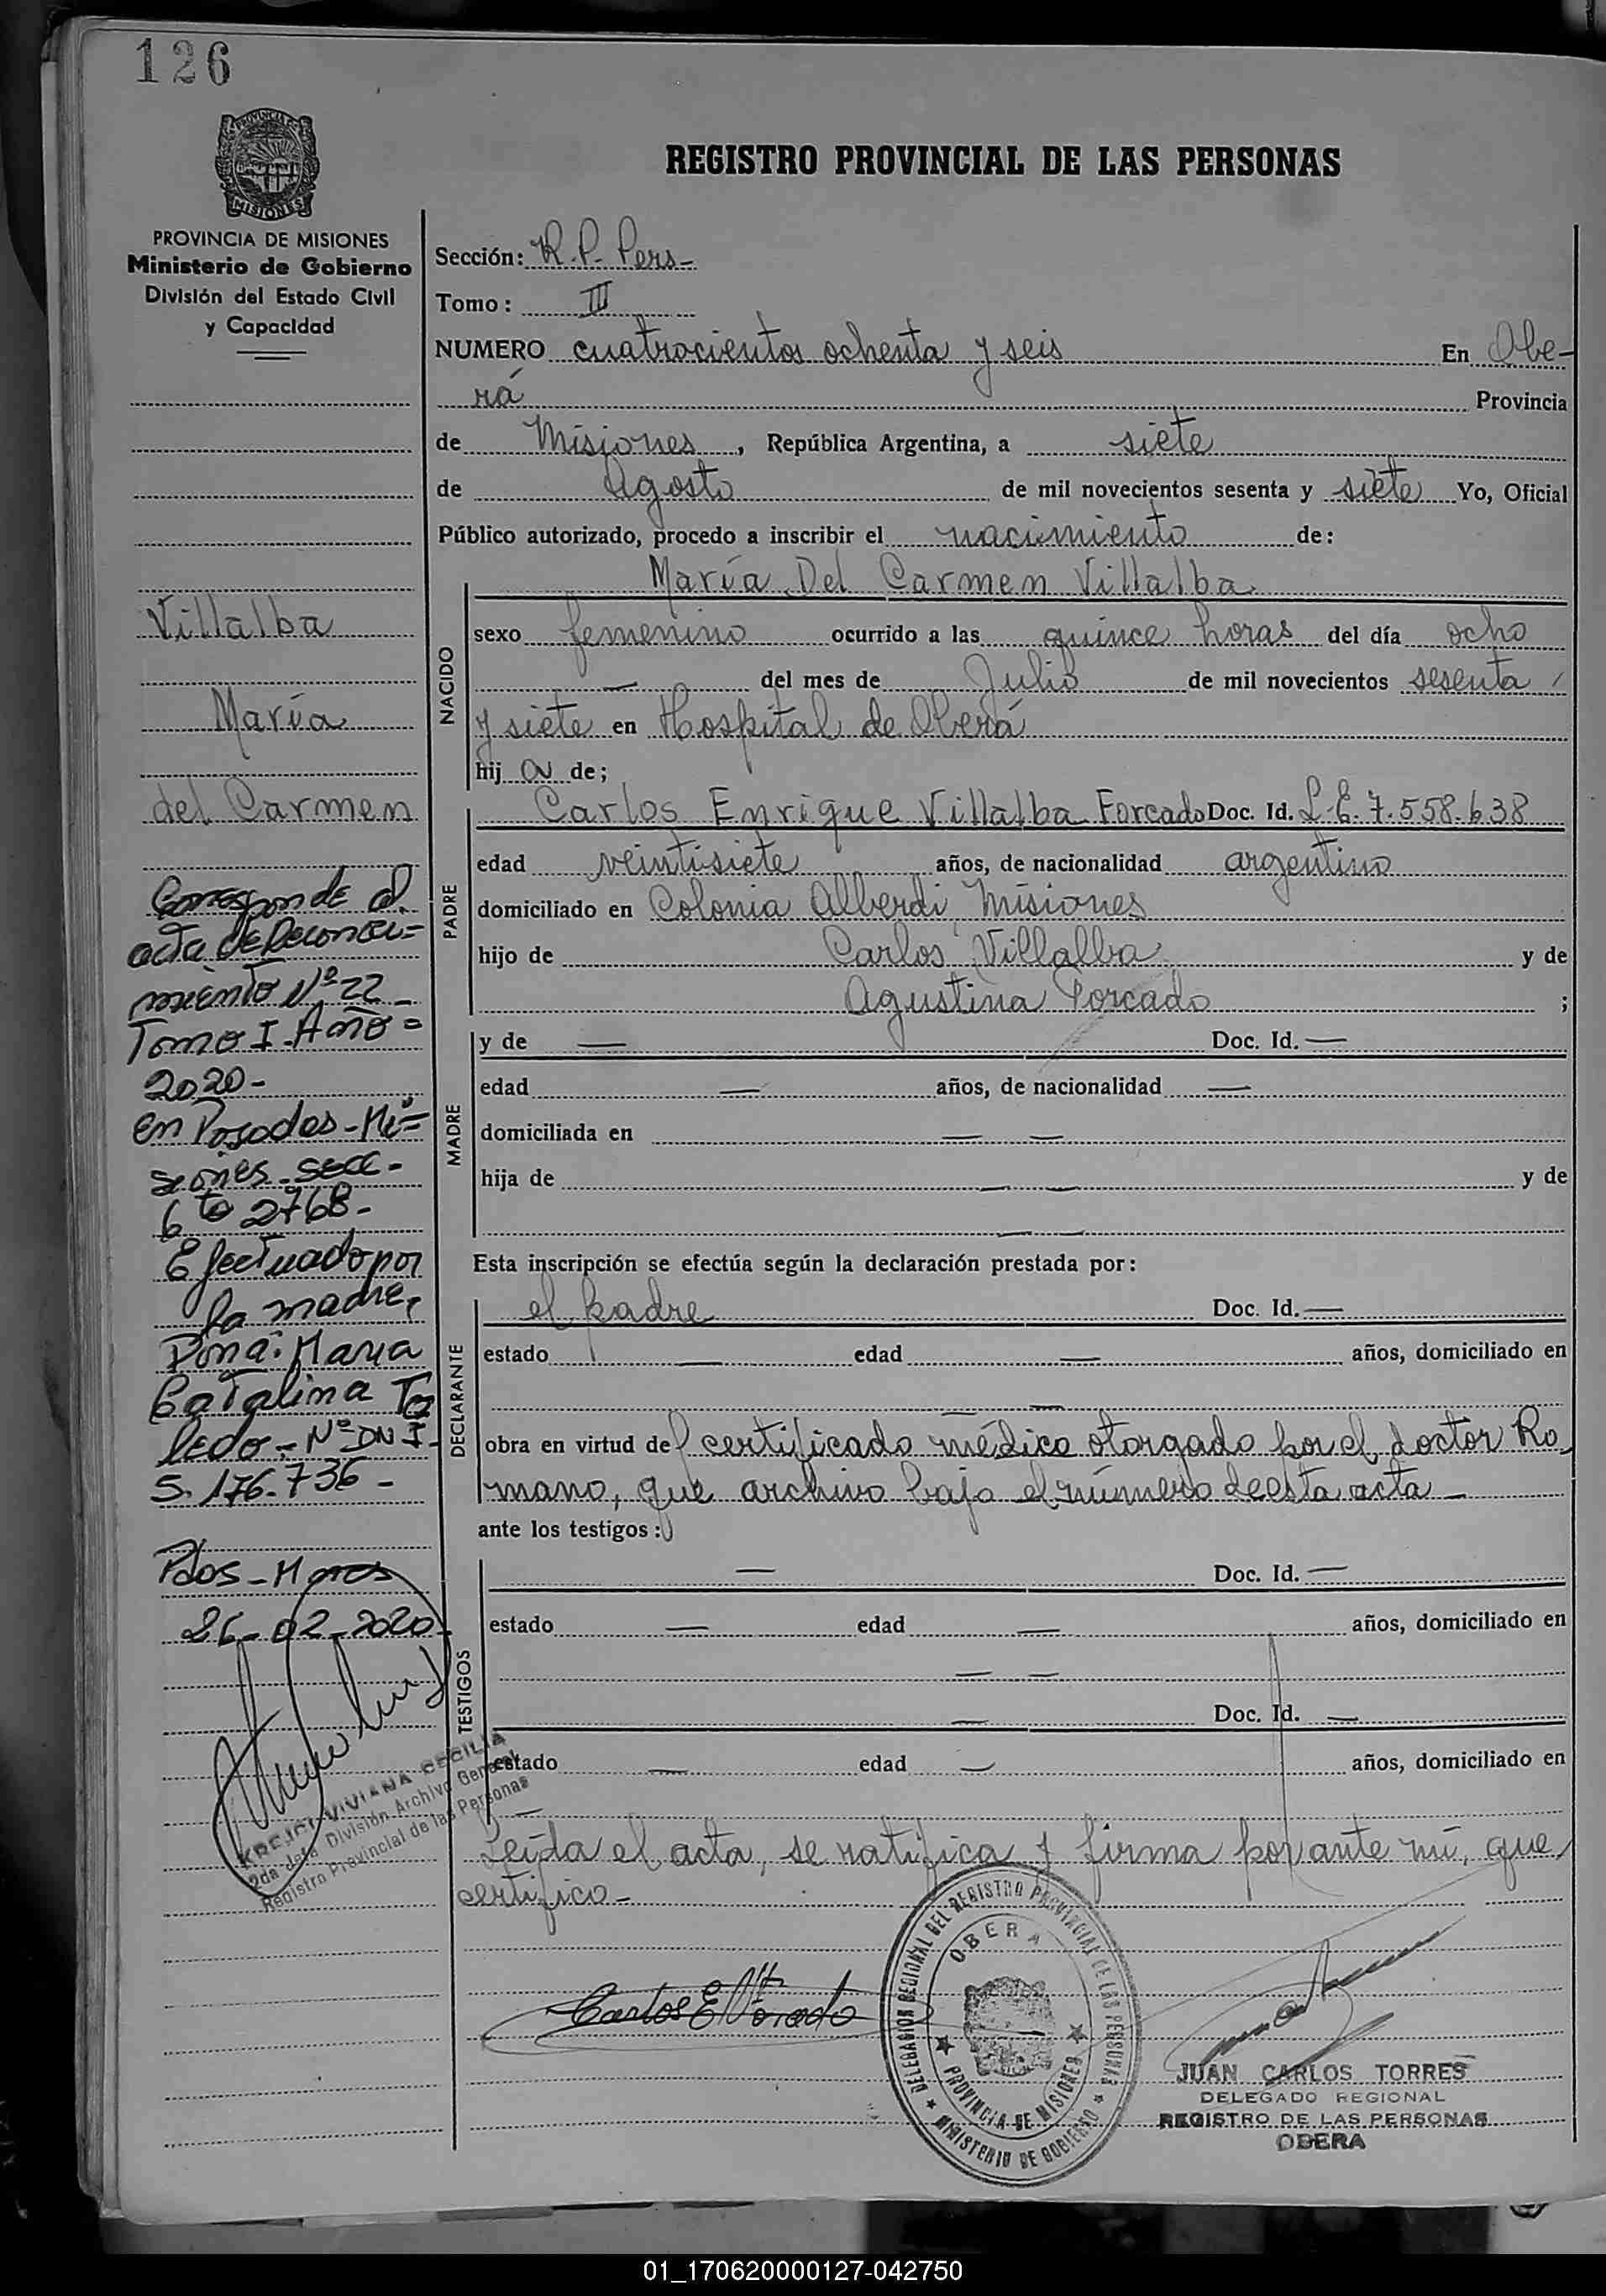 126
PROVINCIA DE
MISIONES
PROVINCIA DE MISIONES
Ministerio de Gobierno
División del Estado Civil
y Capacidad
Villalba
María
del Carmen
Corresponde al
acta de Reconoci=
miento Nº 22
Tomo I. Año =
2020-
en Posadas - Mi=
siones - secc -
6 to 2768-
Efectuado por
la madre,
Doña: Maria
Catalina To
ledo - Nº DNI -
5.176.736 -
Pdos - Mnes
26-02-2020
KREJCI VIVIANA CECILIA
2da Jefa División Archivo General
Registro Provincial de las Personas
REGISTRO PROVINCIAL DE LAS PERSONAS
Sección: R. P. Pers -
Tomo: III
NUMERO cuatrocientos ochenta y seis En Obe-
rá Provincia
de Misiones, República Argentina, a siete
de Agosto de mil novecientos sesenta y siete Yo, Oficial
Público autorizado, procedo a inscribir el nacimiento de:
María Del Carmen Villalba
NACIDO
sexo femenino ocurrido a las quince horas del día ocho
— del mes de Julio de mil novecientos sesenta
y siete en Hospital de Oberá
hij a de;
PADRE
Carlos Enrique Villalba Forcado Doc. Id. L.E. 7.558.638
edad veintisiete años, de nacionalidad argentino
domiciliado en Colonia Alberdi Misiones
hijo de Carlos Villalba y de
Agustina Forcado ;
MADRE
y de — Doc. Id. —
edad — años, de nacionalidad —
domiciliada en — —
hija de — — y de
— —
Esta inscripción se efectúa según la declaración prestada por:
DECLARANTE
el padre Doc. Id. —
estado — edad — años, domiciliado en
— —
obra en virtud del certificado médico otorgado por el doctor Ro
mano, que archivo bajo el número de esta acta —
ante los testigos:
TESTIGOS
— — Doc. Id. —
estado — edad — años, domiciliado en
— —
— Doc. Id. —
estado — edad — años, domiciliado en
—
Leída el acta, se ratifica y firma por ante mí, que
certifico -
Carlos E V Forcado
DELEGACION REGIONAL DEL REGISTRO PROVINCIAL DE LAS PERSONAS
MINISTERIO DE GOBIERNO
OBERA
PROVINCIA DE MISIONES
JUAN CARLOS TORRES
DELEGADO REGIONAL
REGISTRO DE LAS PERSONAS
OBERA
01_170620000127-042750